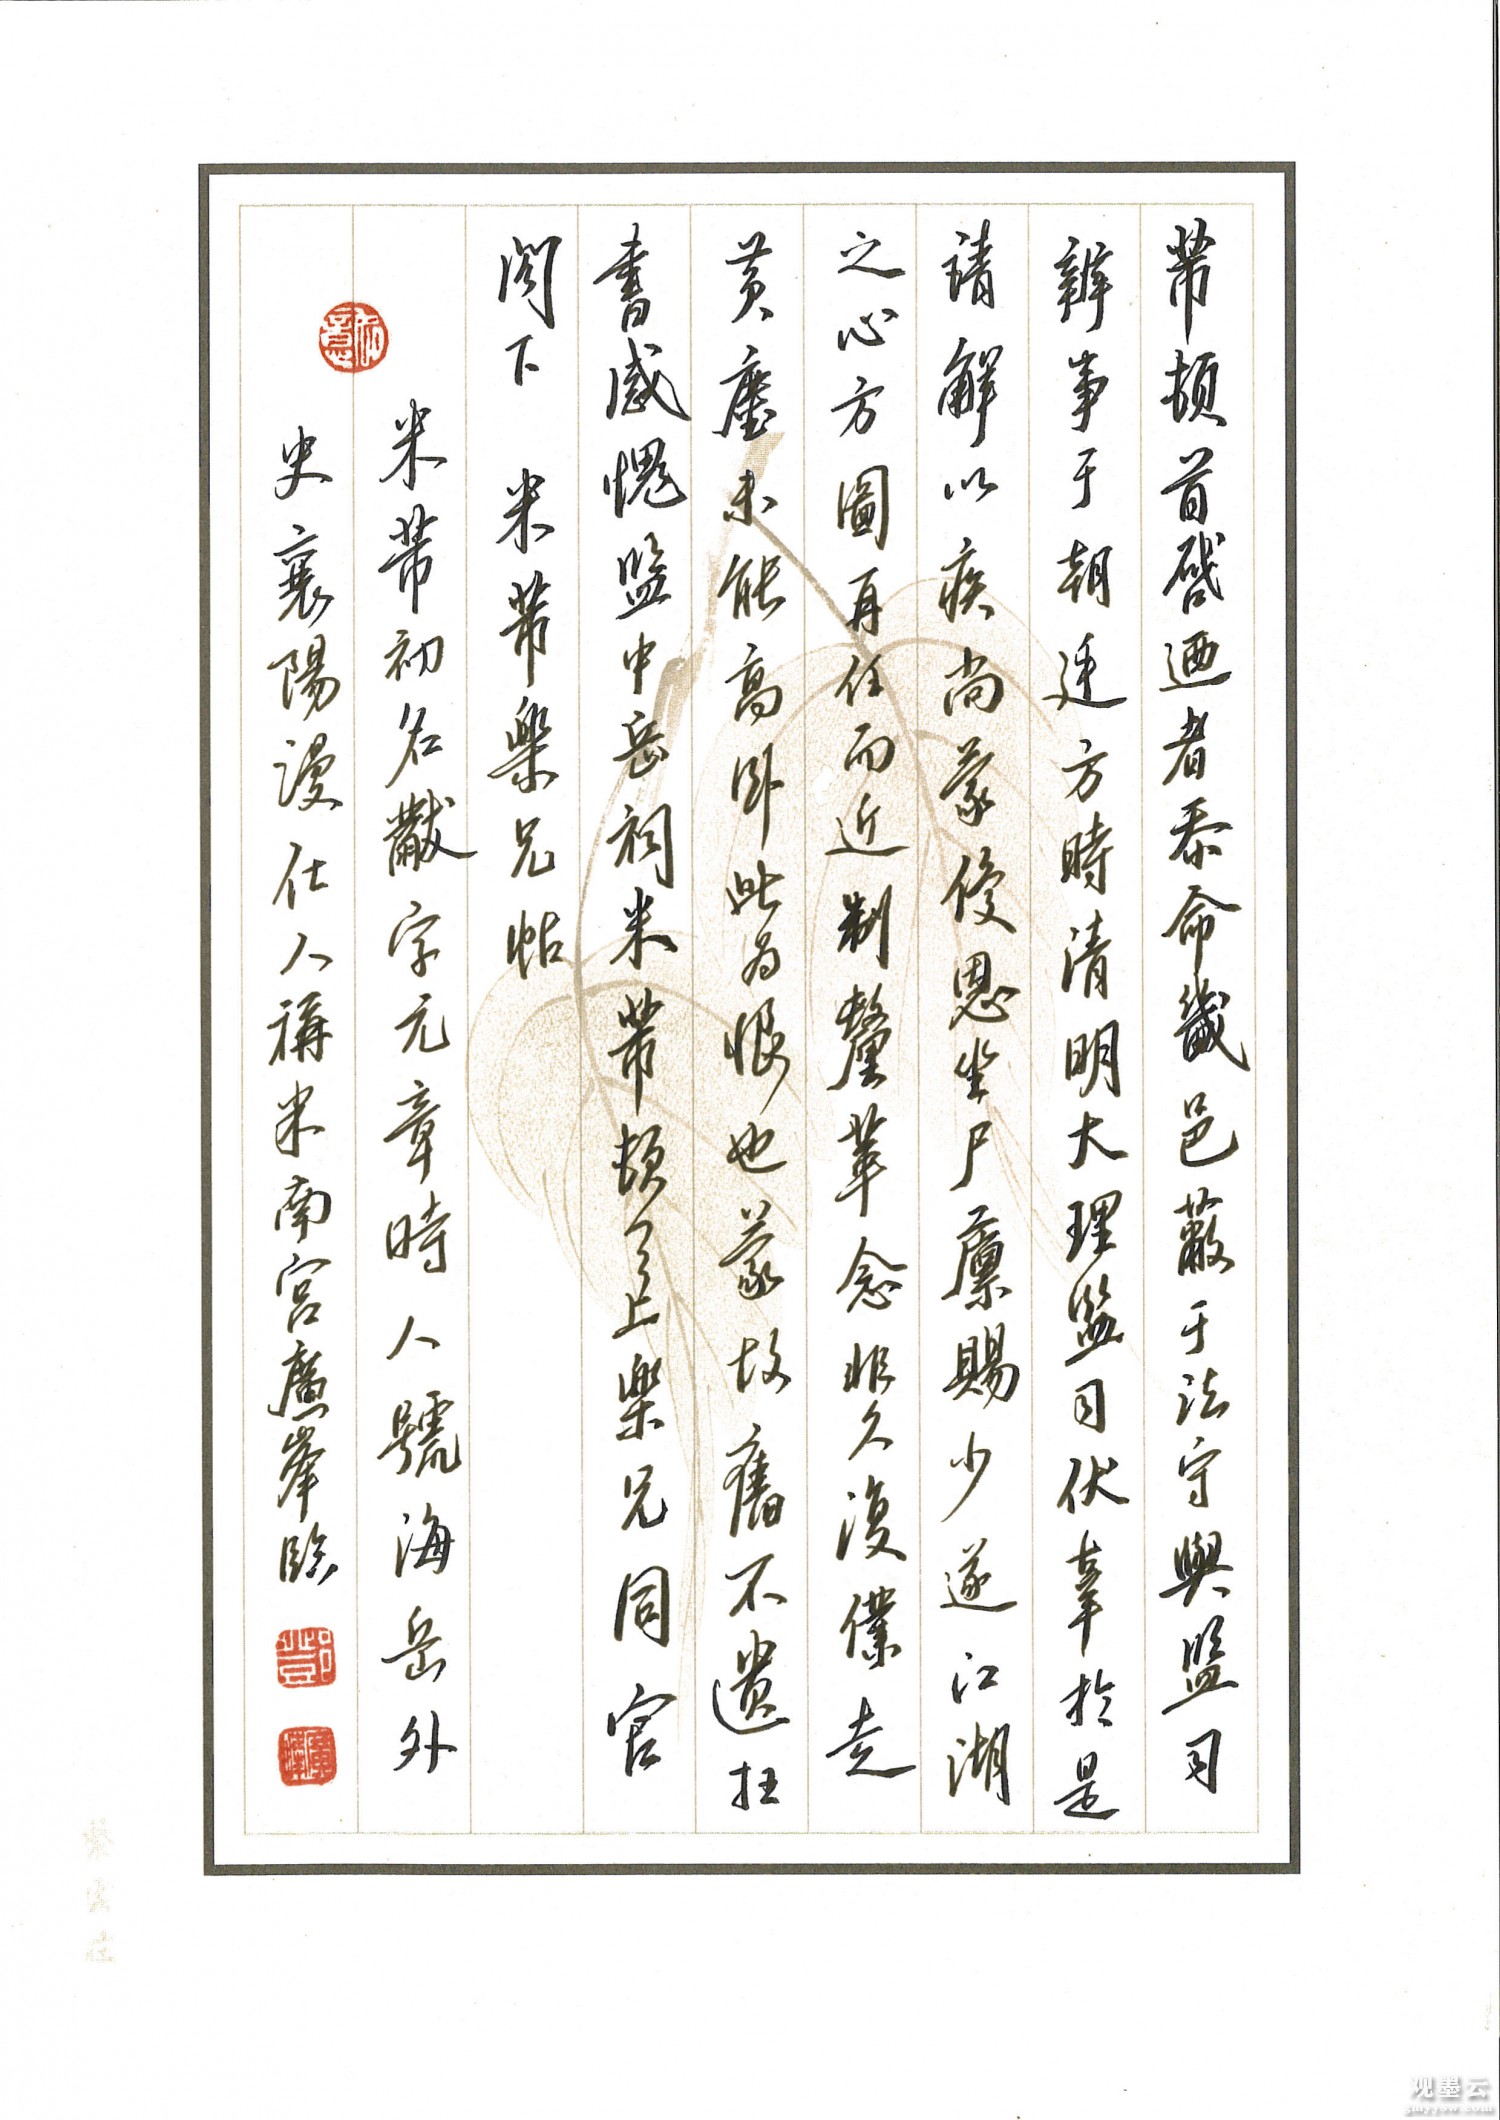 芾頓首啓迺者忝命畿邑蔽于法守與監司
辨事于朝廷方時清明大理監司伏辜於是
請解以疾尚蒙優恩坐尸廩賜少遂江湖
之心方圖再任而近制釐革念非久復僕走
黃塵未能高卧此為恨也蒙故舊不遺枉
書感愧監中岳祠米芾頓首上樂兄同官
閣下 米芾樂兄帖
米芾初名黻字元章時人號海岳外
史襄陽漫仕人稱米南宮廣峯臨
观墨云